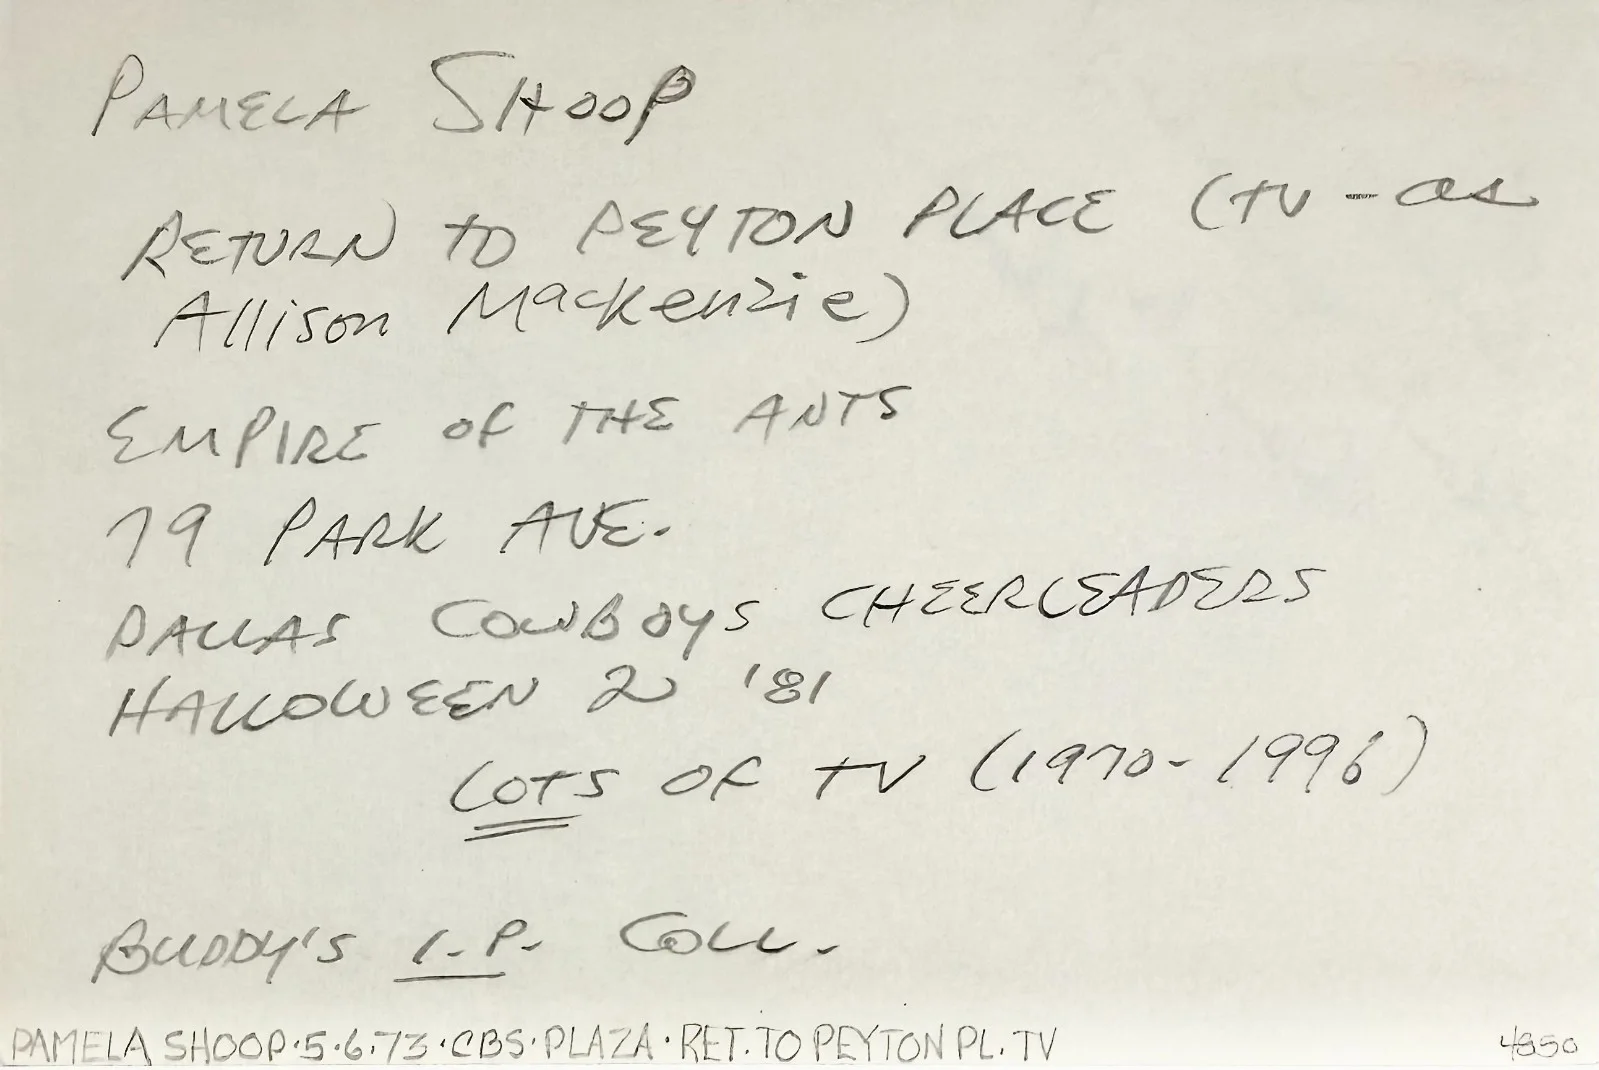 PAMELA SHOOP
RETURN TO PEYTON PLACE (TV - as
Allison Mackenzie)
EMPIRE OF THE ANTS
79 PARK AVE.
DALLAS COWBOYS CHEERLEADERS
HALLOWEEN 2 '81
LOTS OF TV (1970-1996)
BUDDY'S I.P. COLL.
PAMELA SHOOP·5·6·73·CBS·PLAZA·RET. TO PEYTON PL. TV
4850